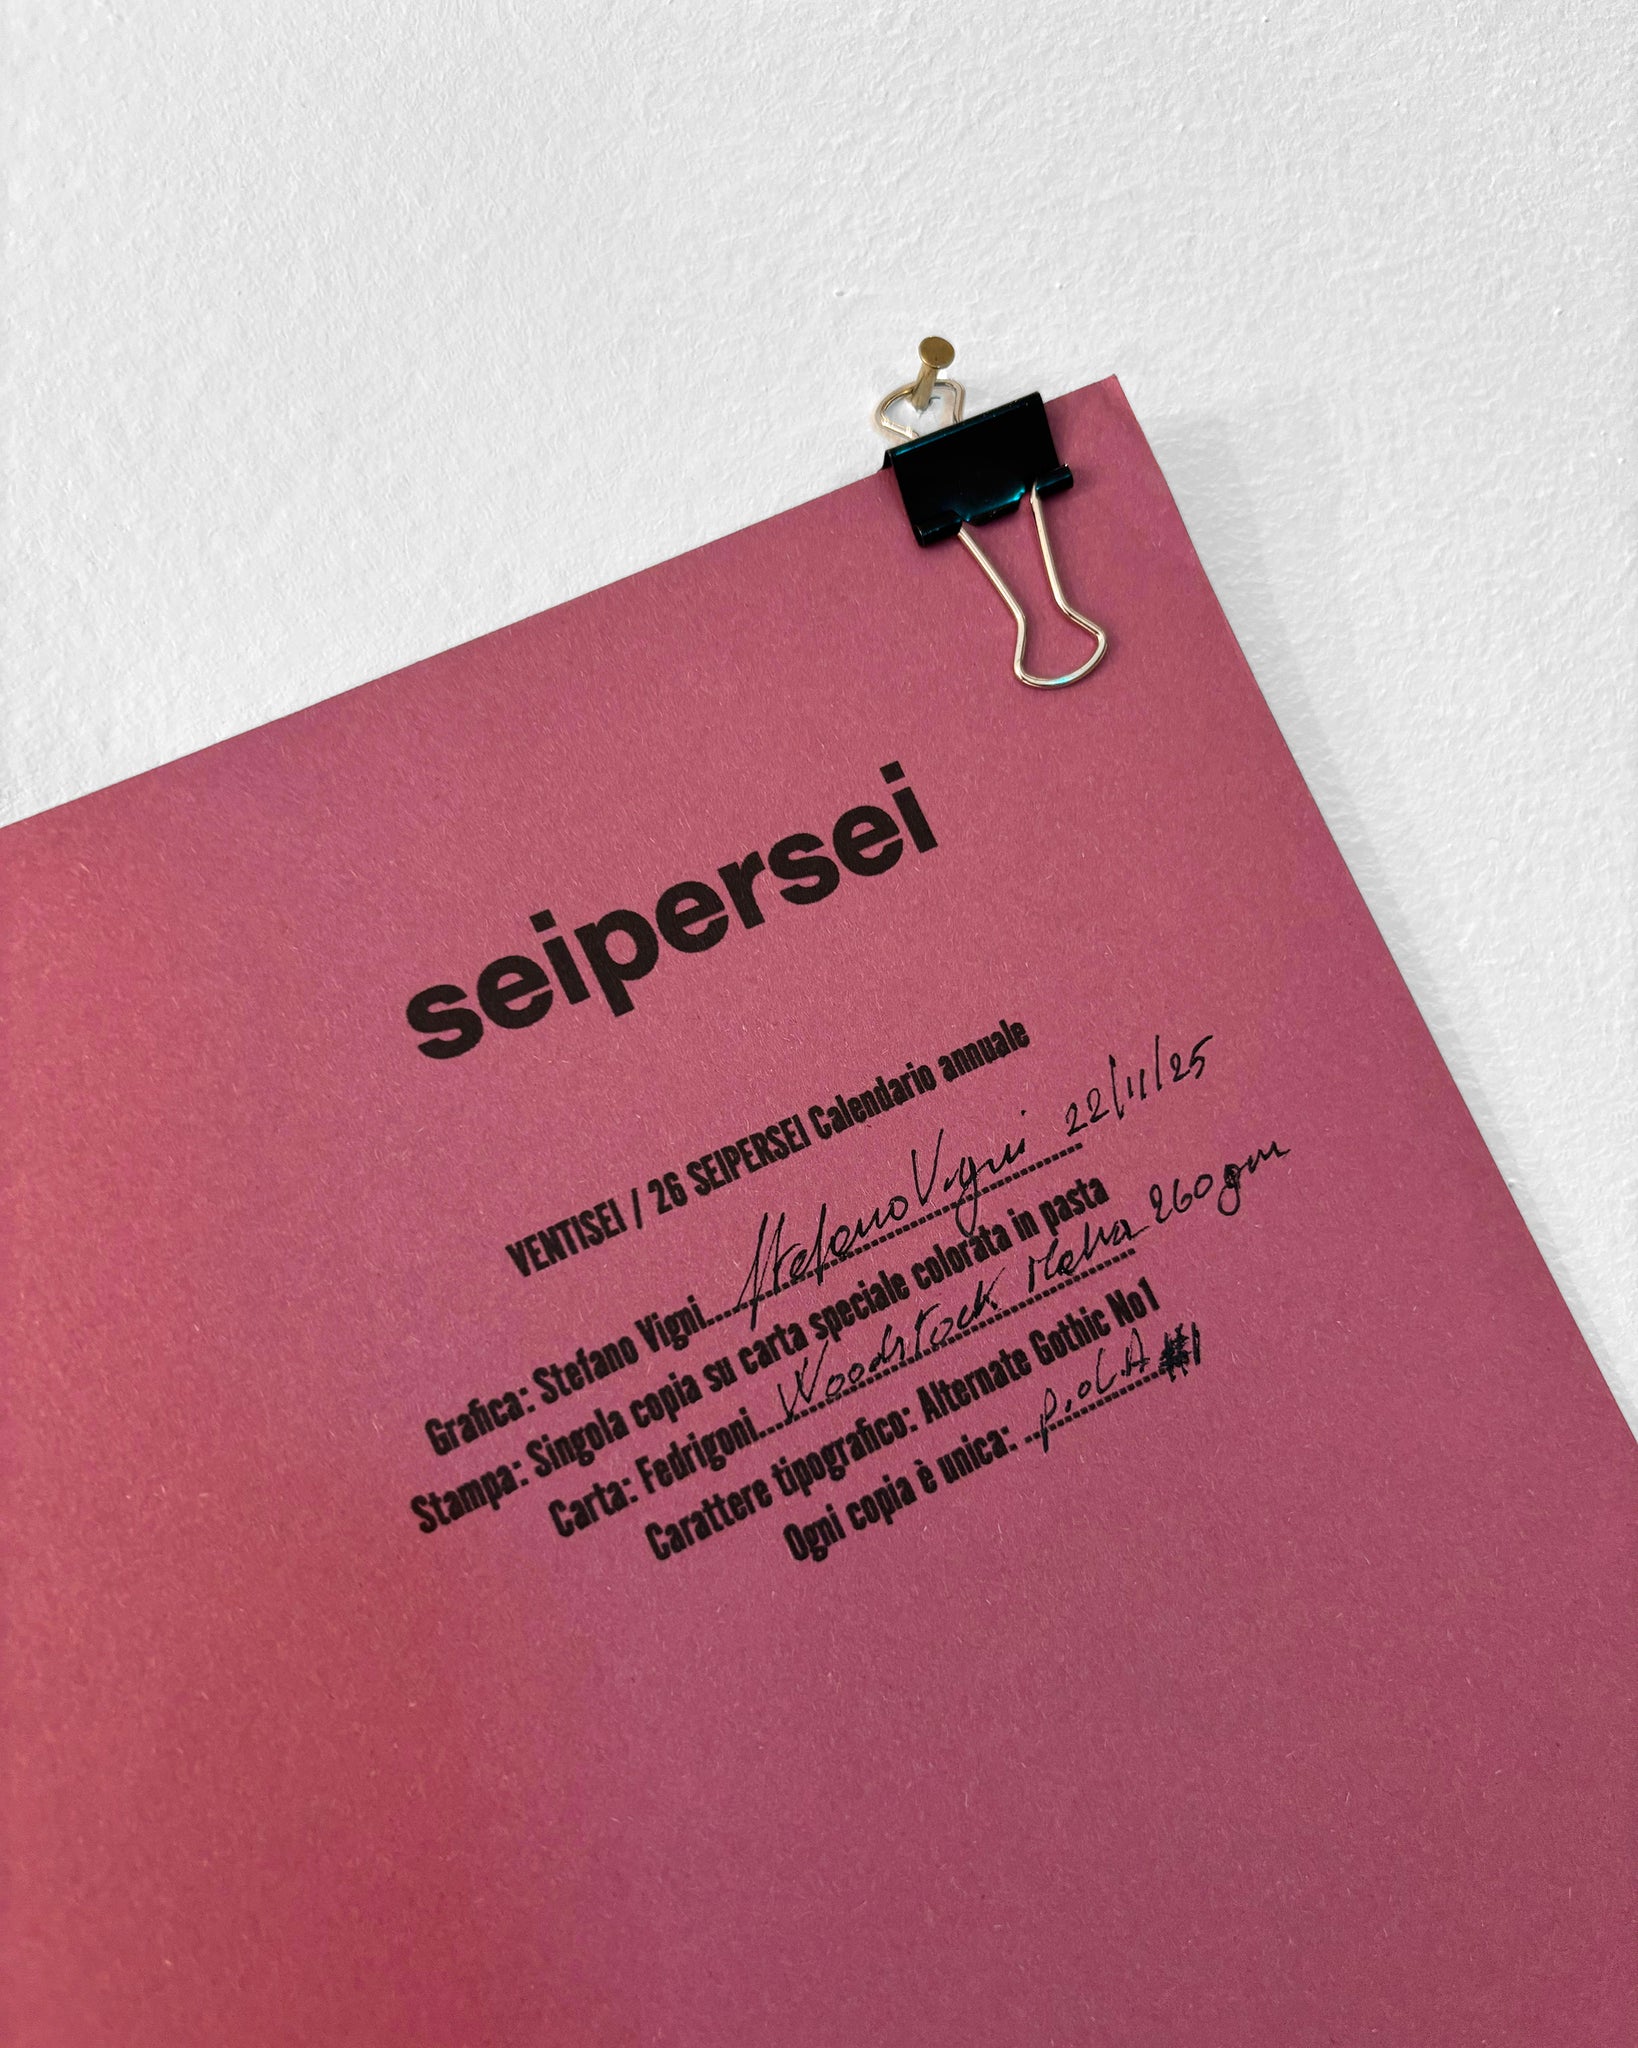 seipersei
VENTISEI / 26 SEIPERSEI Calendario annuale
Grafica: Stefano Vigni........ Stefano Vigni 22/11/25
Stampa: Singola copia su carta speciale colorata in pasta
Carta: Fedrigoni........ Woodstock Malva 260 gm
Carattere tipografico: Alternate Gothic No1
Ogni copia è unica: ........ P.d.A #1